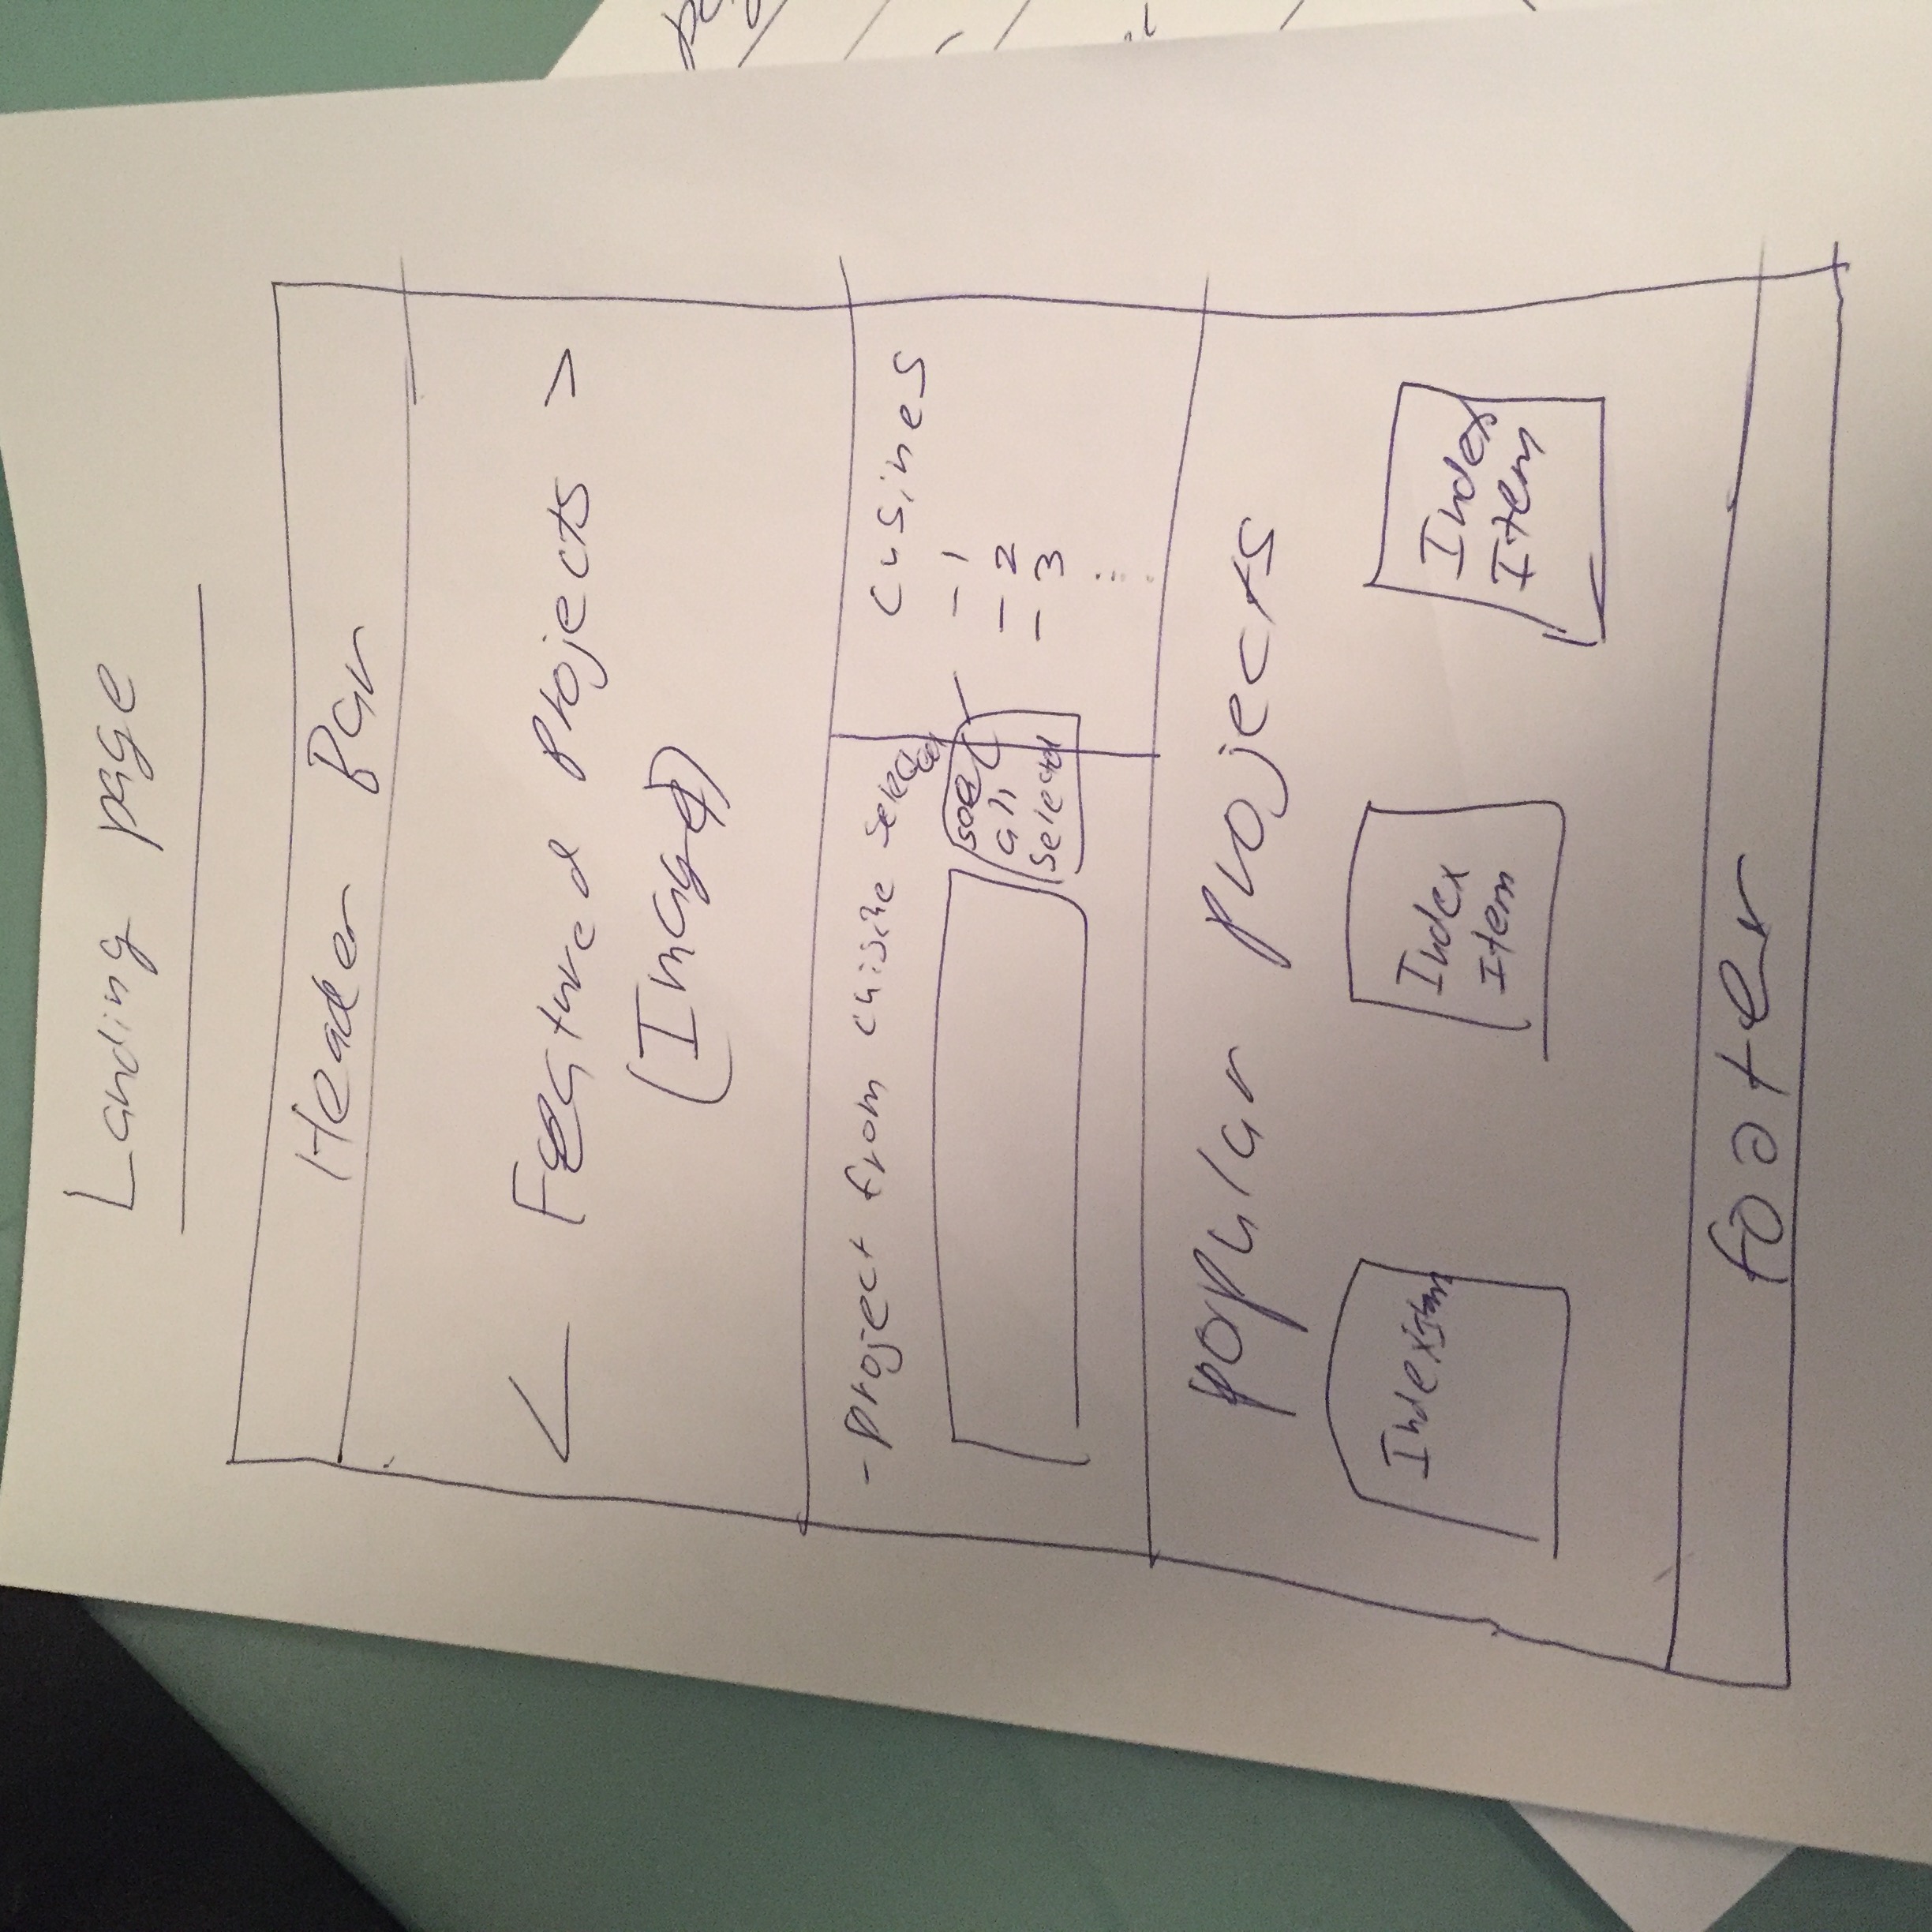 Landing page
Header Bar
< Featured Projects >
(Image)
- project from selected
cusines
all
selected
- 1
- 2
- 3
popular projects
Index Item
Index
Item
Index
Item
footer